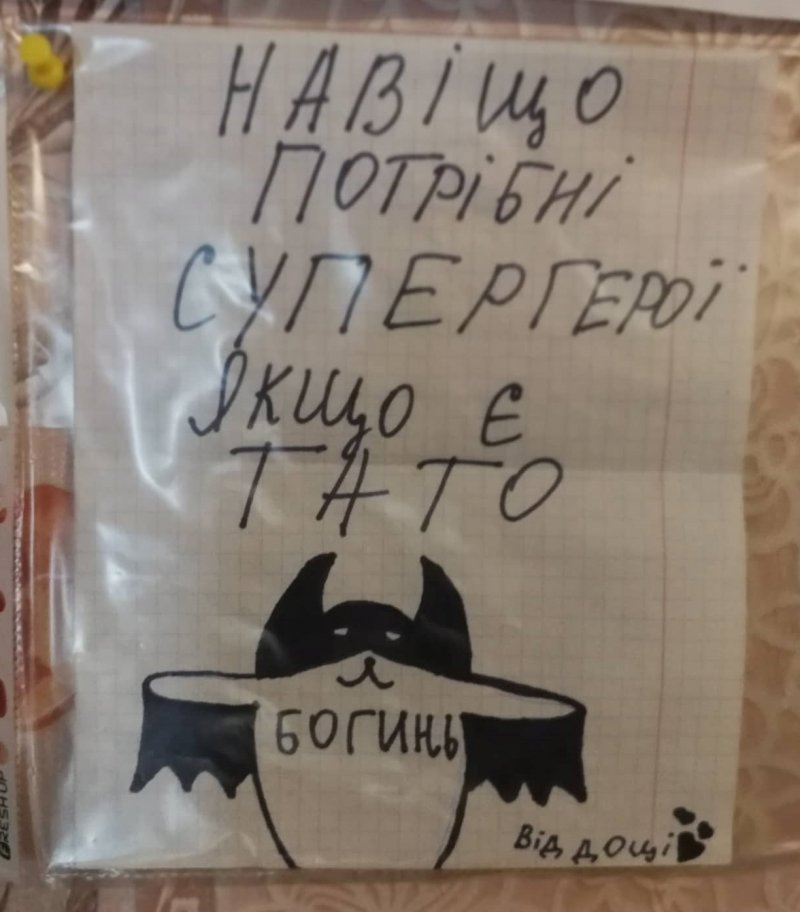 НАВІЩО
ПОТРІБНІ
СУПЕРГЕРОЇ
ЯКЩО Є
ТАТО
БОГИНЬ
Від доці
FRESH UP